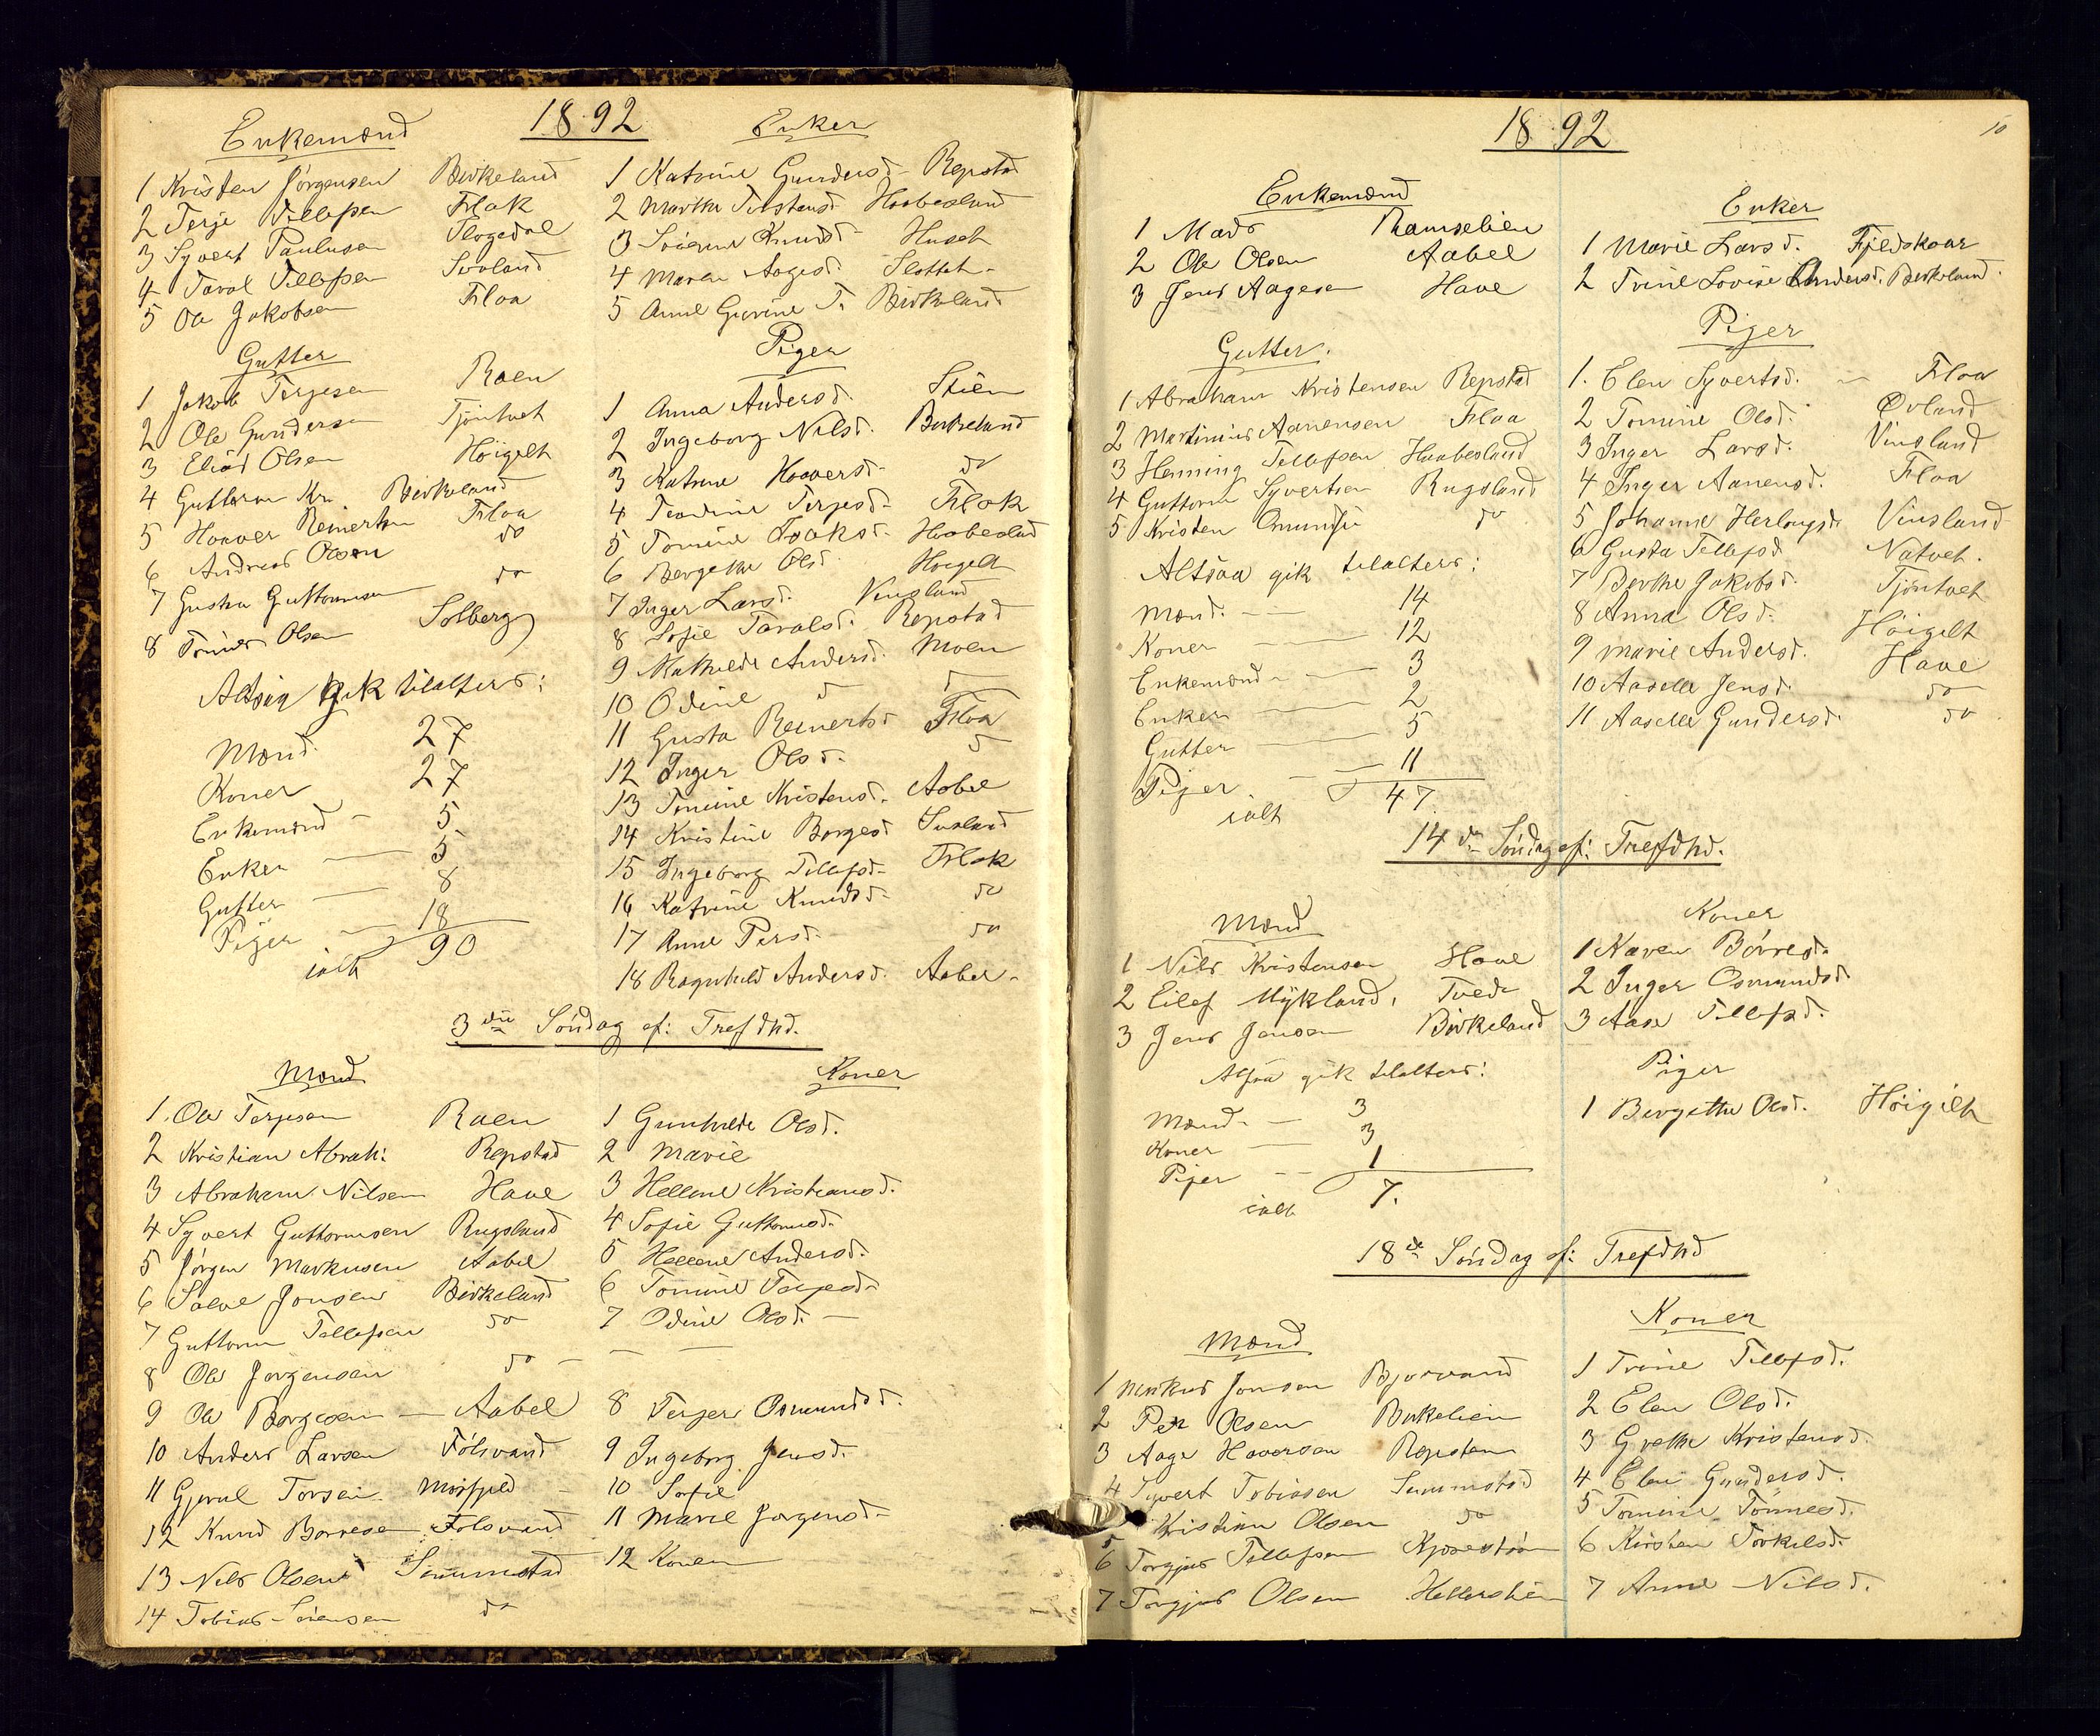 1892
Enkemænd
1 Kristen Jørgensen Birkeland
2 Terje Tellefsen Flak
3 Syvert Paulusen
4 Taral Tellefsen
5 Ole Jakobsen Floa
Enker
1 Katrine Gundersd. Repstad
2 Marthe Haabesland
3 Huset
4 Maren Aagesd. Slottet
5 Anne Gurine T. Birkeland
Gutter
1 Jakob Terjesen Roen
2 Ole Gundersen Tjöntvet
3 Olsen Höigilt
4 Guttorm Kr. Birkeland
5 Haaver Reinertsen Floa
6 Andreas Olsen do
7 Guttormsen do
8 Olsen Solberg
Altsaa gik tilalters:
Mænd. 27
Koner 27
Enkemænd 5
Enker 5
Gutter 8
Piger 18
ialt 90
Piger
1 Anna Andersd. Stien
2 Ingeborg Nilsd. Birkeland
3 Katrine Haaversd. do
4 Teodine Terjesd. Flak
5 Tomine Isaksd. Haabesland
6 Bergethe Olsd. Høigilt
7 Inger Larsd. Vinsland
8 Sofie Taralsd. Repstad
9 Mathilde Andersd. Moen
10 Odine d d
11 Gusta Reinertsd Floa
12 Inger Olsd. d
13 Tomine Kristensd. Aabel
14 Kristine Borgesd
15 Ingeborg Tellefsd. Flak
16 Katrine Knudsd. do
17 Anne Persd. do
18 Ragnhild Andersd. Aabel
3die Söndag ef: Trefdhd.
Mænd
1. Ole Terjesen Roen
2 Kristian Abrah: Repstad
3 Abraham Nilsen Have
4 Syvert Guttormsen Rugsland
5 Jörgen Markusen Aabel
6 Salve Jensen Birkeland
7 Guttorm Tellefsen do
8 Ole Jørgensen do
9 Ole Borgesen Aabel
10 Anders Larsen Fölsvand
11 Torsen Mosfjeld
12 Knud Borresen Folsvand
13 Nils Olsen Simmestad
14 Tobias Sörensen do
Koner
1 Gunhilde Olsd.
2 Marie
3 Hellene Kristiansd.
4 Sofie Guttormsd.
5 Hellene Andersd.
6 Tomine Terjesd.
7 Odine Olsd.
8 Osmundsd.
9 Ingeborg Jensd.
10 Sofie
11 Marie Jørgensd.
12 Konen
1892
10
Enkemænd
1 Mads Ramselien
2 Ole Olsen Aabel
3 Jens Aagesen Have
Enker
1 Marie Larsd. Fjeldskaar
2 Trine Lovise Andersd. Birkeland
Gutter.
1 Abraham Kristensen Repstad
2 Martinius Aanensen Floa
3 Henning Tellefsen Haabesland
4 Guttorm Syvertsen Rugsland
5 Kristen do
Altsaa gik tilalters:
Mænd. 14
Koner 12
Enkemænd 3
Enker 2
Gutter 5
Piger 11
ialt 47
Piger
1. Elen Syvertsd. Floa
2 Tomine Olsd.
3 Inger Larsd. Vinsland
4 Inger Aanensd. Floa
5 Johanne Herlougsd Vinsland
6 Gusta Tellefsd Natvet.
7 Berthe Jakobsd. Tjöntvet
8 Anna Olsd. Höigilt
9 Marie Andersd. Have
10 Aaselle Jensd. do
11 Aaselle Gundersd. do
14de Söndag ef: Trefdhd.
Mænd
1 Nils Kristensen Have
2 Eilef Mykland, Tvede
3 Jens Jensen Birkeland
Koner
1 Karen Börresd.
2 Inger Osmundsd
3 Aase Tellefsd.
Altsaa gik tilalters:
Mænd 3
Koner 3
Piger 1
ialt 7.
Piger
1 Bergethe Olsd. Höigilt
18de Söndag ef: Trefdhd
Mænd
1 Markus Jensen Bjorvand
2 Per Olsen Birkelien
3 Aage Haaversen Repstøen
4 Syvert Tobiasen Simmestad
5 Kristian Olsen do
6 Torgjus Tellefsen
7 Torgjus Olsen
Koner
1 Trine Tellefsd.
2 Elen Olsd.
3 Grethe Kristensd.
4 Elen Gundersd.
5 Tomine Tönnesd.
6 Kirsten Torkilsd.
7 Anne Nilsd.